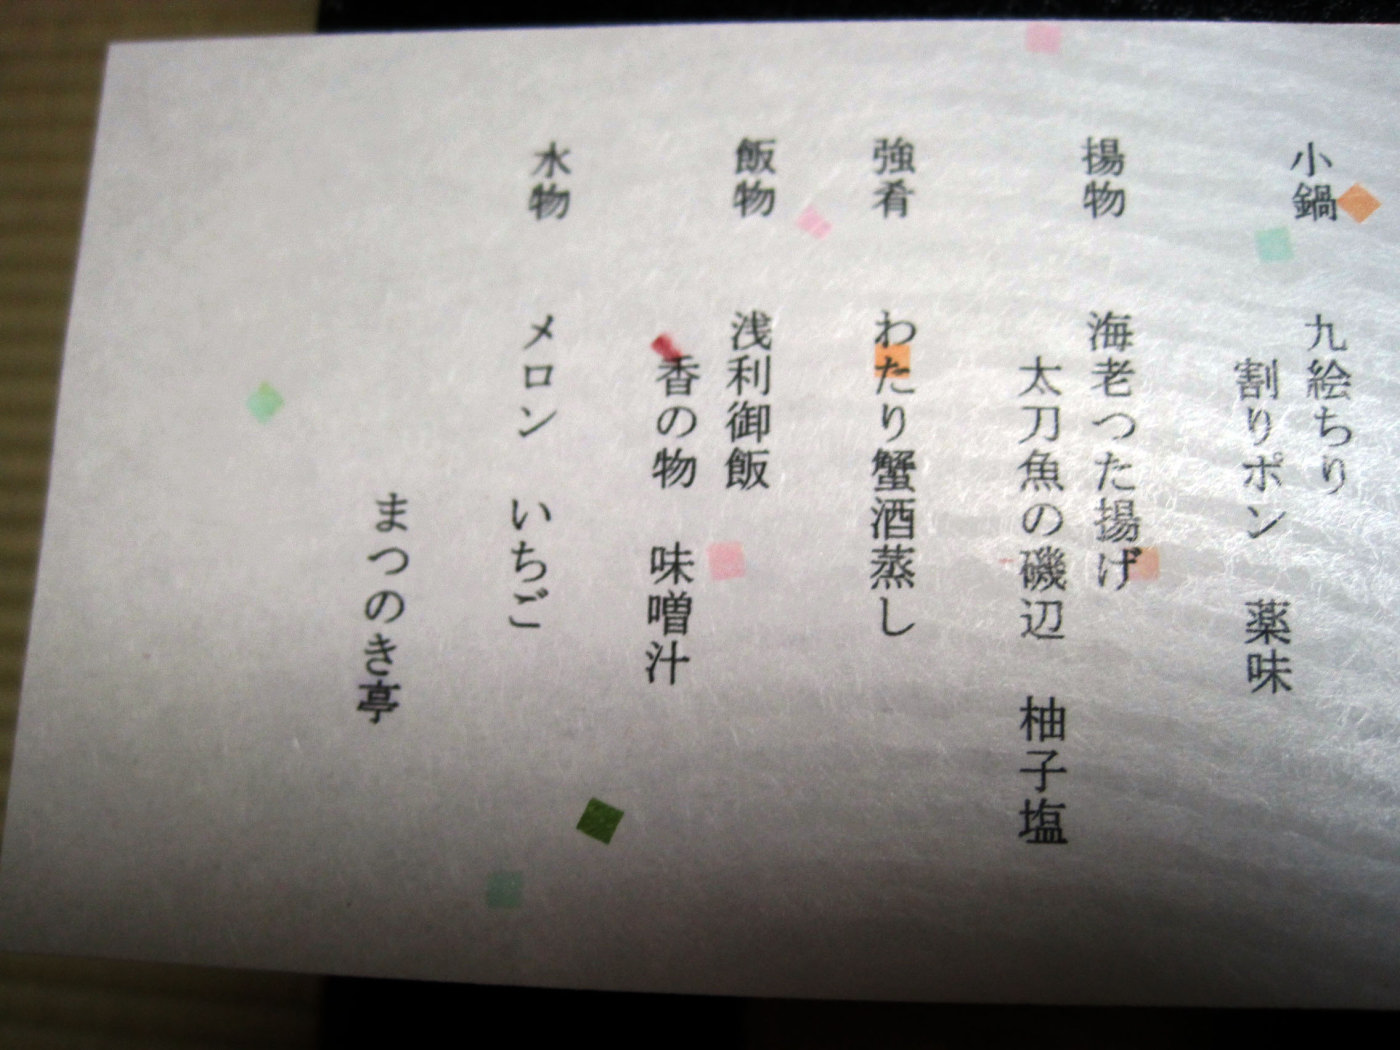 小鍋　九絵ちり
割りポン　薬味
揚物　海老つた揚げ
太刀魚の磯辺　柚子塩
強肴　わたり蟹酒蒸し
飯物　浅利御飯
香の物　味噌汁
水物　メロン　いちご
まつのき亭